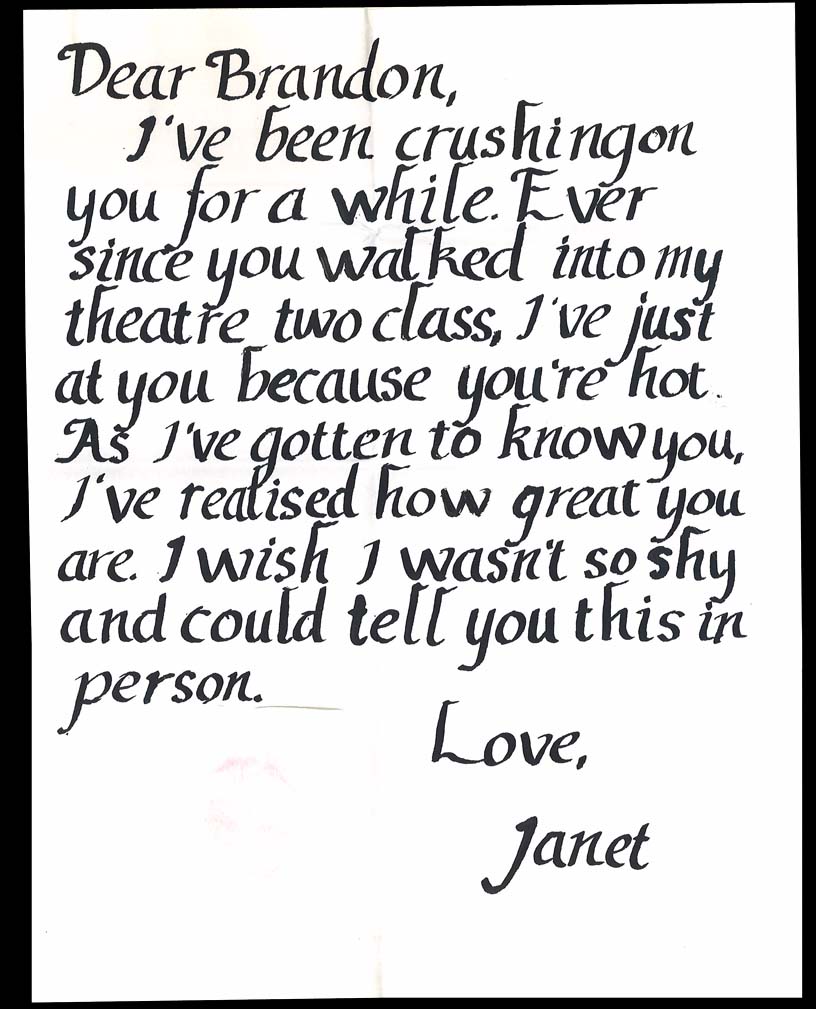 Dear Brandon,
I've been crushing on
you for a while. Ever
since you walked into my
theatre two class, I've just
at you because you're hot.
As I've gotten to know you,
I've realised how great you
are. I wish I wasn't so shy
and could tell you this in
person.
Love,
Janet